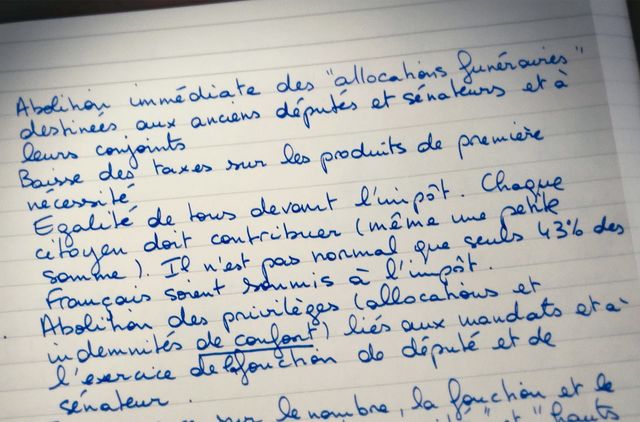 Abolition immédiate des "allocations funéraires"
destinées aux anciens députés et sénateurs et à
leurs conjoints
Baisse des taxes sur les produits de première
nécessité
Egalité de tous devant l'impôt. Chaque
citoyen doit contribuer (même une petite
somme). Il n'est pas normal que seuls 43% des
Français soient soumis à l'impôt.
Abolition des privilèges (allocations et
indemnités de confort) liés aux mandats et à
l'exercice de la fonction de député et de
sénateur.
sur le nombre, la fonction et le
et "hauts